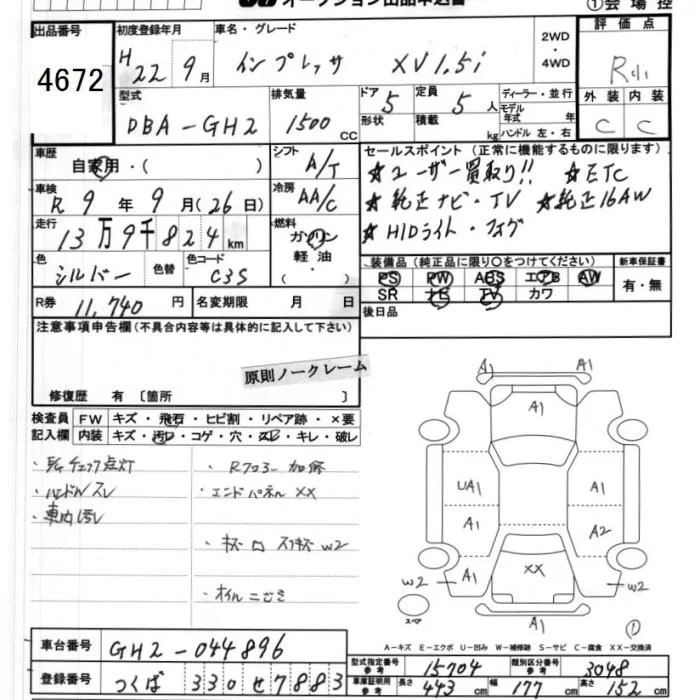 オークション出品申込書
①会場控
出品番号 4672
初度登録年月 H22年9月
車名・グレード インプレッサ XV 1.5i
2WD・4WD
評価点 R小
外装 C 内装 C
型式 DBA-GH2
排気量 1500 CC
ドア 5 形状
定員 5人 積載 kg
ディーラー・並行
モデル年式 年
ハンドル 左・右
車歴 自家用・( )
シフト A/T
車検 R9年9月(26日)
冷房 AA/C
走行 13万9千824km
燃料 ガソリン 軽油 ( )
色 シルバー 色替 色コード C3S
R券 11,740円 名変期限 月 日
セールスポイント(正常に機能するものに限ります)
★ユーザー買取り!! ★ETC
★純正ナビ・TV ★純正16AW
★HIDライト・フォグ
装備品(純正品に限り○をつけてください) 新車保証書
PS PW ABS エアB AW 有・無
SR ナビ TV カワ
後日品
注意事項申告欄(不具合内容等は具体的に記入して下さい)
原則ノークレーム
修復歴 有 〔箇所 〕
検査員記入欄
FW キズ・飛石・ヒビ割・リペア跡・×要
内装 キズ・汚レ・コゲ・穴・スレ・キレ・破レ
・チェック点灯
・ハンドルスレ
・車内汚レ
・Rフロアー加修
・エンドパネルXX
・キズ W2
・オイルニジミ
A1 A1
A1
UA1 A1
A1 A2
W2 A1 XX W2
スペア A1
①
A-キズ E-エクボ U-凹み W-補修跡 S-サビ C-腐食 XX-交換済
車台番号 GH2-044896
登録番号 つくば 330 せ 7883
型式指定番号 参考 15704 類別区分番号 参考 3048
車庫証明用 参考 長さ 443cm 幅 177cm 高さ 152cm